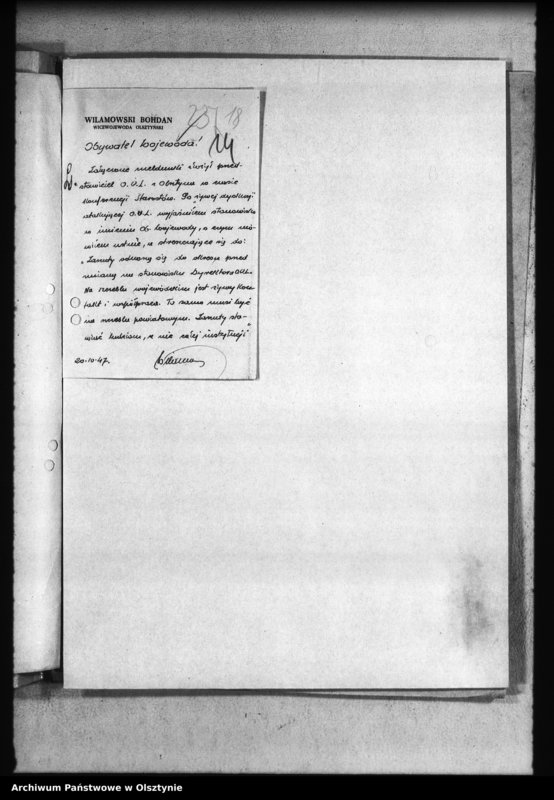 25/18
WILAMOWSKI BOHDAN
WICEWOJEWODA OLSZTYŃSKI
Obywatel Wojewoda!
Załączone meldunki złożył przed-
stawiciel O.U.L. z Olsztyna w czasie
konferencji Starostów. Po żywej dyskusji
atakującej O.U.L. wyjaśniłem stanowisko
w imieniu Ob. Wojewody, o czym mó-
wiłem ustnie, a streszczające się do:
"Zarzuty odnoszą się do okresu przed
zmianą na stanowisku Dyrektora OUL.
Na szczeblu wojewódzkim jest żywy kon-
takt i współpraca. To samo musi być
na szczeblu powiatowym. Zarzuty sta-
wiać ludziom, a nie całej instytucji"
20.10.47.
Archiwum Państwowe w Olsztynie